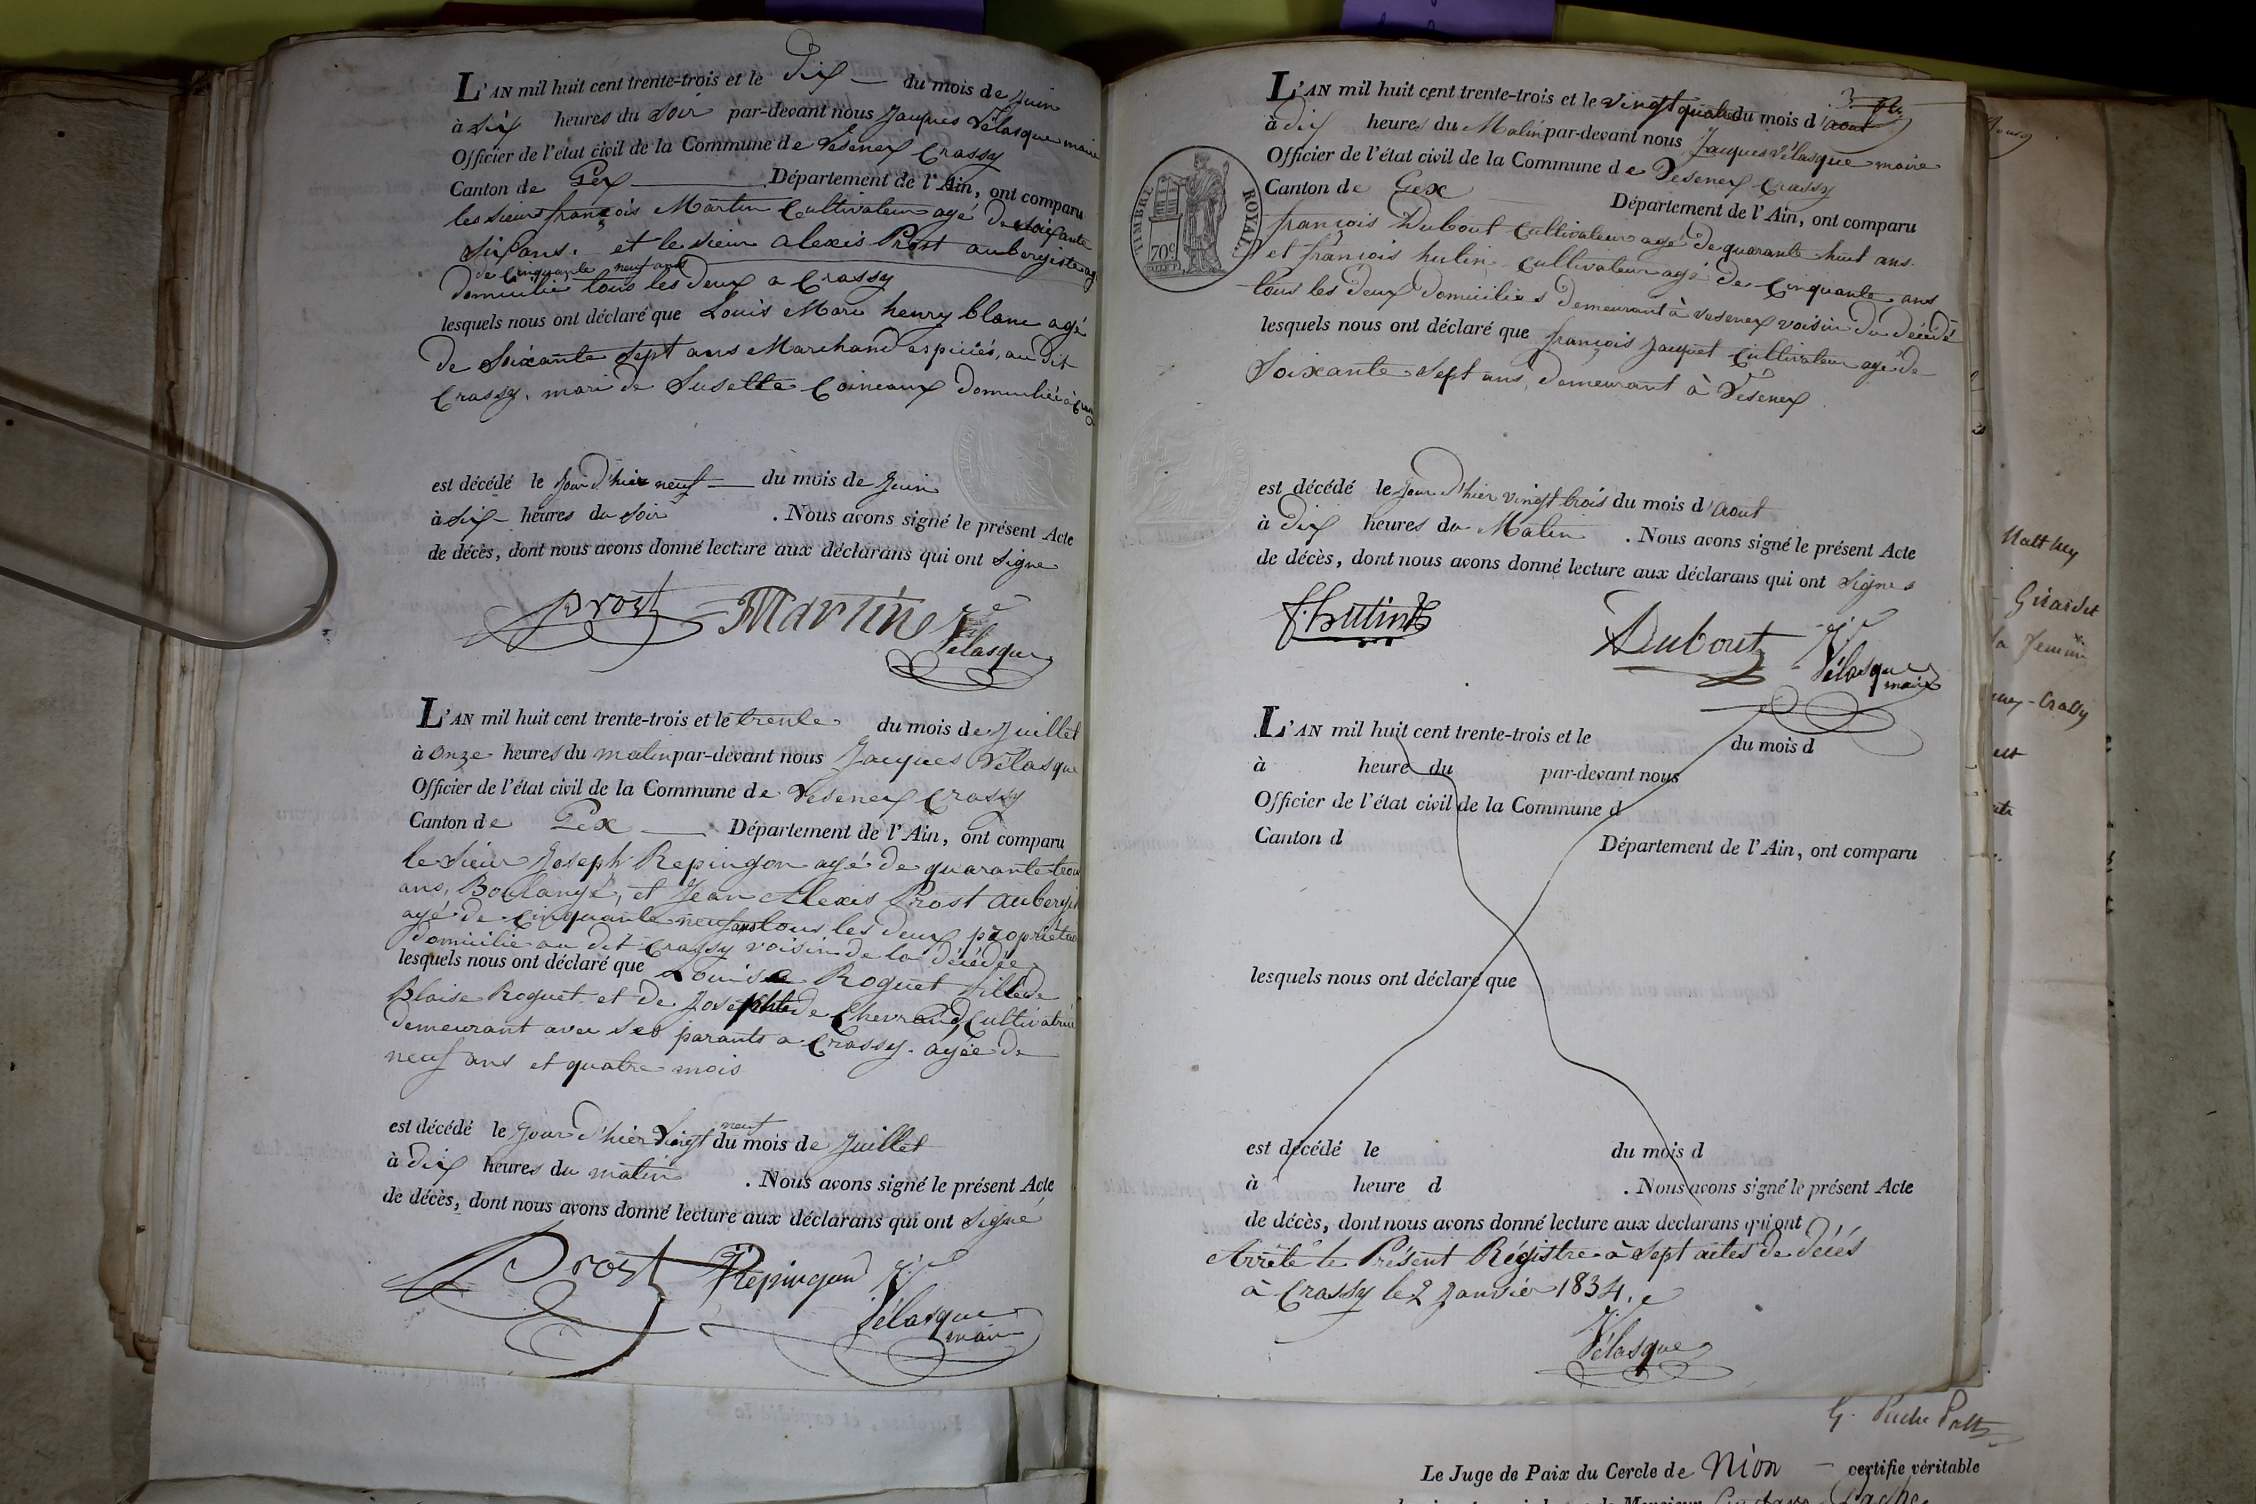 L'AN mil huit cent trente-trois et le Dix du mois de juin
à Six heures du Soir par-devant nous Jacques Vélasque maire
Officier de l'état civil de la Commune de Vesenex Crassy
Canton de Gex Département de l'Ain, ont comparu
les sieurs françois Martin Cultivateur agé de soixante
Six ans. et le sieur alexis Prost aubergiste agé
de Cinquante neuf ans
Domicilié tous les deux a Crassy
lesquels nous ont déclaré que Louis Marc henry blanc agé
de Soixante Sept ans Marchand espiciés, au dit
Crassy, mari de Susette Coineaux Domiciliée à Crassy
est décédé le jour d'hier neuf du mois de Juin
à Six heures du Soir . Nous avons signé le présent Acte
de décès, dont nous avons donné lecture aux déclarans qui ont Signe
Prost Martin Vélasque
L'AN mil huit cent trente-trois et le trente du mois de Juillet
à Onze heures du matin par-devant nous Jacques Vélasque
Officier de l'état civil de la Commune de Vesenex Crassy
Canton de Gex Département de l'Ain, ont comparu
le Sieur Joseph Repingon agé de quarante trois
ans, Boulangé, et Jean Alexis Prost Aubergist
agé de Cinquante neuf ans tous les deux propriétai
Domicilié au dit Crassy voisin de la décédée
lesquels nous ont déclaré que Louise Roguet fille de
Blaise Roguet et de Josephte de Chevraud, Cultivatrice
demeurant avec ses parants a Crassy. agée de
neuf ans et quatre mois
neuf
est décédé le jour d'hier Vingt du mois de Juillet
à Dix heures du matin . Nous avons signé le présent Acte
de décès, dont nous avons donné lecture aux déclarans qui ont Signé
Prost Repingon Vélasque
maire
L'AN mil huit cent trente-trois et le vingt quatre du mois d'aout
à Dix heures du Matin par-devant nous Jacques Vélasque maire
Officier de l'état civil de la Commune de Vesenex Crassy
Canton de Gex Département de l'Ain, ont comparu
françois Dubout Cultivateur agé de quarante huit ans
et françois hutin Cultivateur agé de Cinquante ans
tous les deux Domiciliés demeurant à vesenex voisin du décédé
lesquels nous ont déclaré que françois Jaquet Cultivateur agé de
Soixante Sept ans, demeurant à Vesenex
est décédé le jour d'hier vingt trois du mois d'aout
à Dix heures du Matin . Nous avons signé le présent Acte
de décès, dont nous avons donné lecture aux déclarans qui ont Signés
f. hutin Dubout Vélasque
maire
TIMBRE ROYAL.
70c
L'AN mil huit cent trente-trois et le du mois d
à heure du par-devant nous
Officier de l'état civil de la Commune d
Canton d Département de l'Ain, ont comparu
lesquels nous ont déclaré que
est décédé le du mois d
à heure d . Nous avons signé le présent Acte
de décès, dont nous avons donné lecture aux déclarans qui ont
Arrêté le Présent Régistre à Sept actes de décés
à Crassy le 2 Janvier 1834.
Vélasque
Matthey
Girardet
la femme
Crassy
Le Juge de Paix du Cercle de Nion certifie véritable